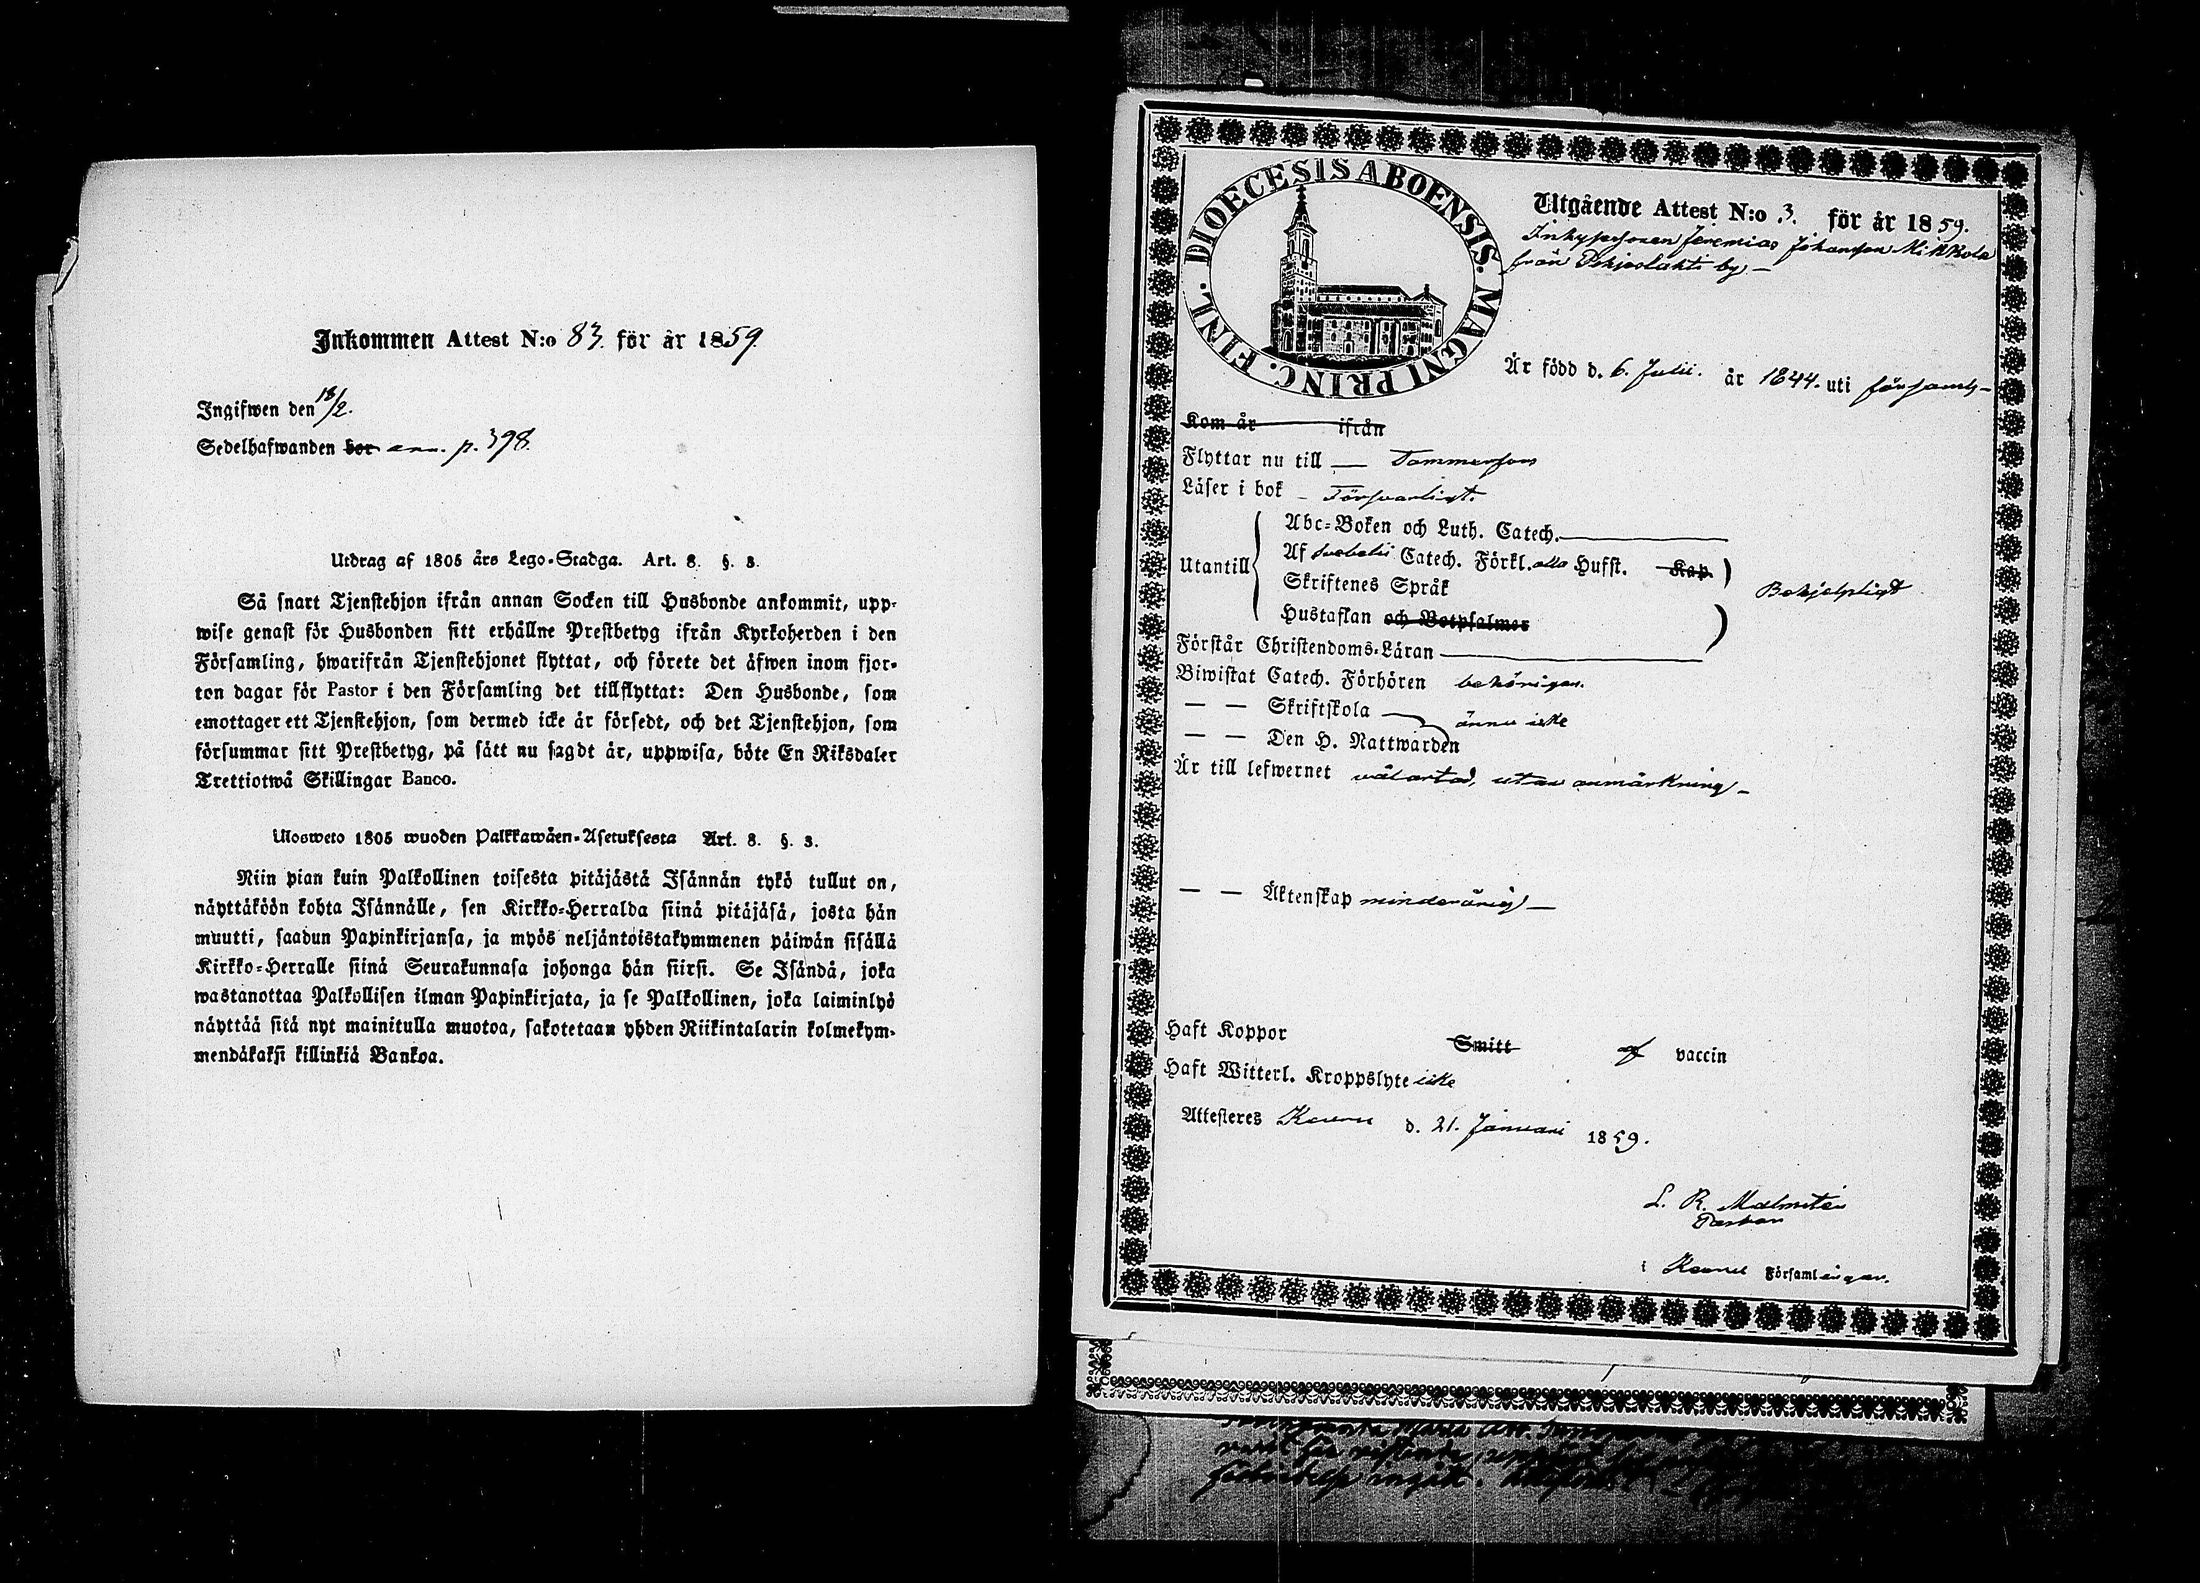 Inkommen Attest N:o 83. för år 1859.
Ingifwen den 18/2.
Sedelhafwanden bor ann. p. 398.
Utdrag af 1805 års Lego-Stadga. Art. 8. §. 3.
Så snart Tjenstehjon ifrån annan Socken till Husbonde ankommit, upp-
wise genast för Husbonden sitt erhållne Prestbetyg ifrån Kyrkoherden i den
Församling, hwarifrån Tjenstehjonet flyttat, och förete det äfwen inom fjor-
ton dagar för Pastor i den Församling det tillflyttat: Den Husbonde, som
emottager ett Tjenstehjon, som dermed icke är försedt, och det Tjenstehjon, som
försummar sitt Prestbetyg, på sätt nu sagdt är, uppwisa, böte En Riksdaler
Trettiotwå Skillingar Banco.
Ulosweto 1805 wuoden Palkkawäen-Asetuksesta Art. 8. §. 3.
Niin pian kuin Palkollinen toisesta pitäjästä Isännän tykö tullut on,
näyttäköön kohta Isännälle, sen Kirkko-Herralda siinä pitäjäsä, josta hän
muutti, saadun Papinkirjansa, ja myös neljäntoistakymmenen päiwän sisällä
Kirkko-Herralle siinä Seurakunnasa johonga hän siirsi. Se Isändä, joka
wastanottaa Palkollisen ilman Papinkirjata, ja se Palkollinen, joka laiminlyö
näyttää sitä nyt mainitulla muotoa, sakotetaan yhden Riikintalarin kolmekym-
mendäkaksi killinkiä Bankoa.
DIOECESIS ABOENSIS. MAGNI PRINC. FINL.
Utgående Attest N:o 3. för år 1859.
Jeremias Johansson Mikkola
från Pohjoslahti by
Är född d. 6. Julii. år 1844. uti församl-
Kom år ifrån
Flyttar nu till — Tammerfors
Läser i bok — Försvarligt.
Abc-Boken och Luth. Catech.
Utantill Af Svebelii Catech. Förkl. alla Hufst. Kap.
Skriftenes Språk
Behjelpligt
Hustaflan och Botpsalmer
Förstår Christendoms-Läran
Biwistat Catech. Förhören behörigen.
— — Skriftskola ännu icke
— — Den H. Nattwarden
Är till lefwernet välartad, utan anmärkning —
— — Äktenskap minderårig —
Haft Koppor Smitt af vaccin
Haft Witterl. Kroppslyte icke
Attesteres Keuru d. 21. Januari 1859.
L. R. Malmstén
Pastor
i Keuru Församlingar.